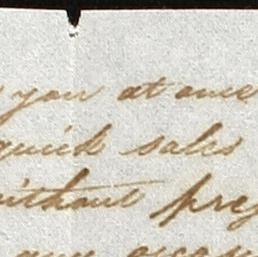 you at once
quick sales
without prej
any